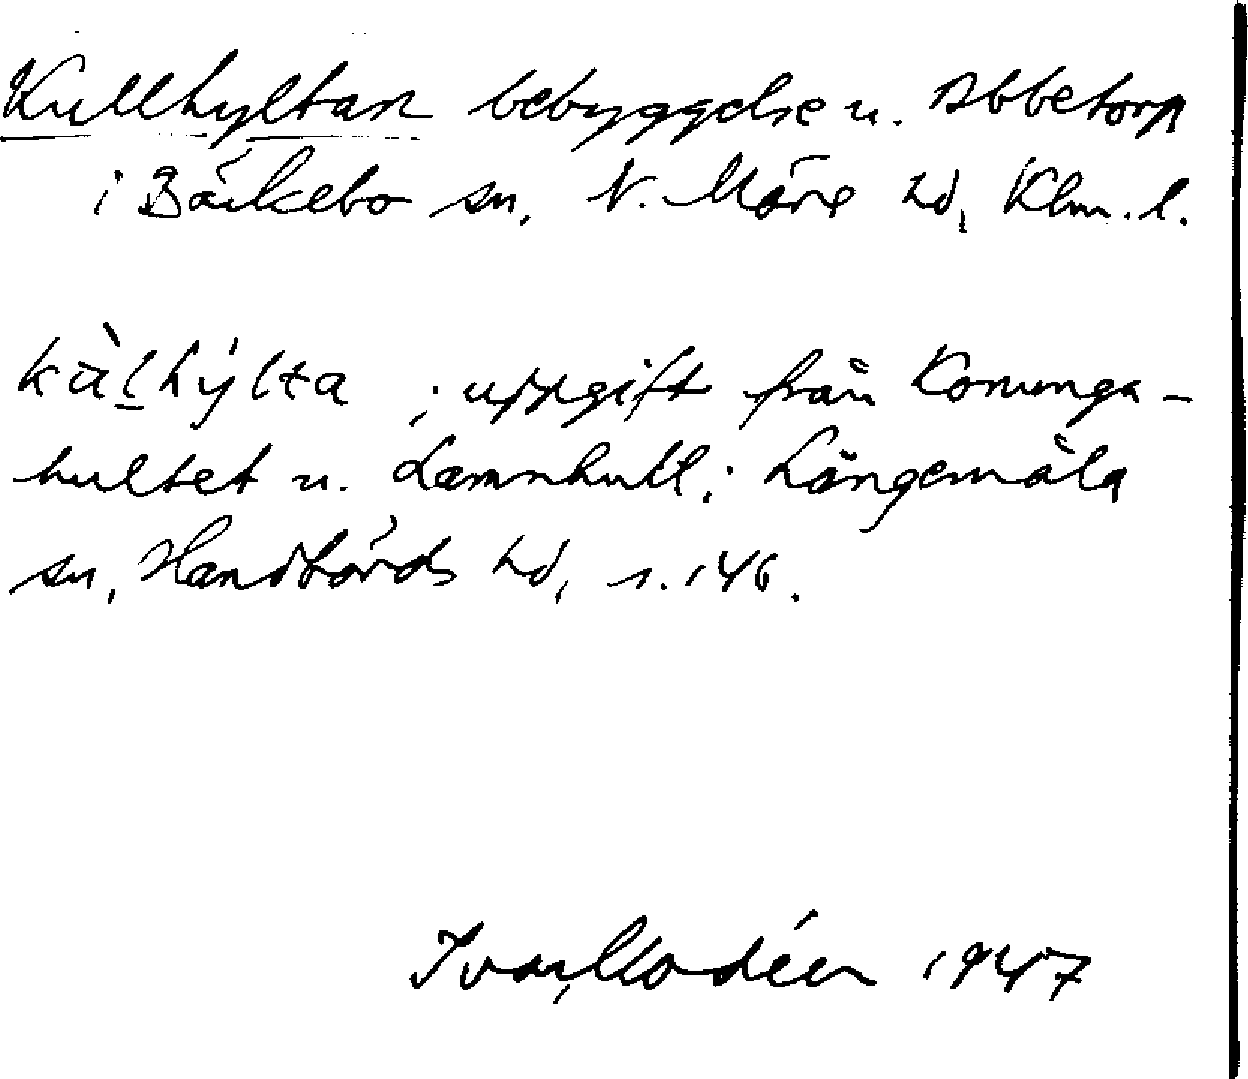 Kullhyltan bebyggelse u. Abbetorp
i Bäckebo sn, N. Möre hd, Klm. l.
kùlhýlta ; uppgift från Konunga-
hultet u. Lamnhult i Långemåla
sn, Handbörds hd, s. 146.
Ivar Modéer 1947